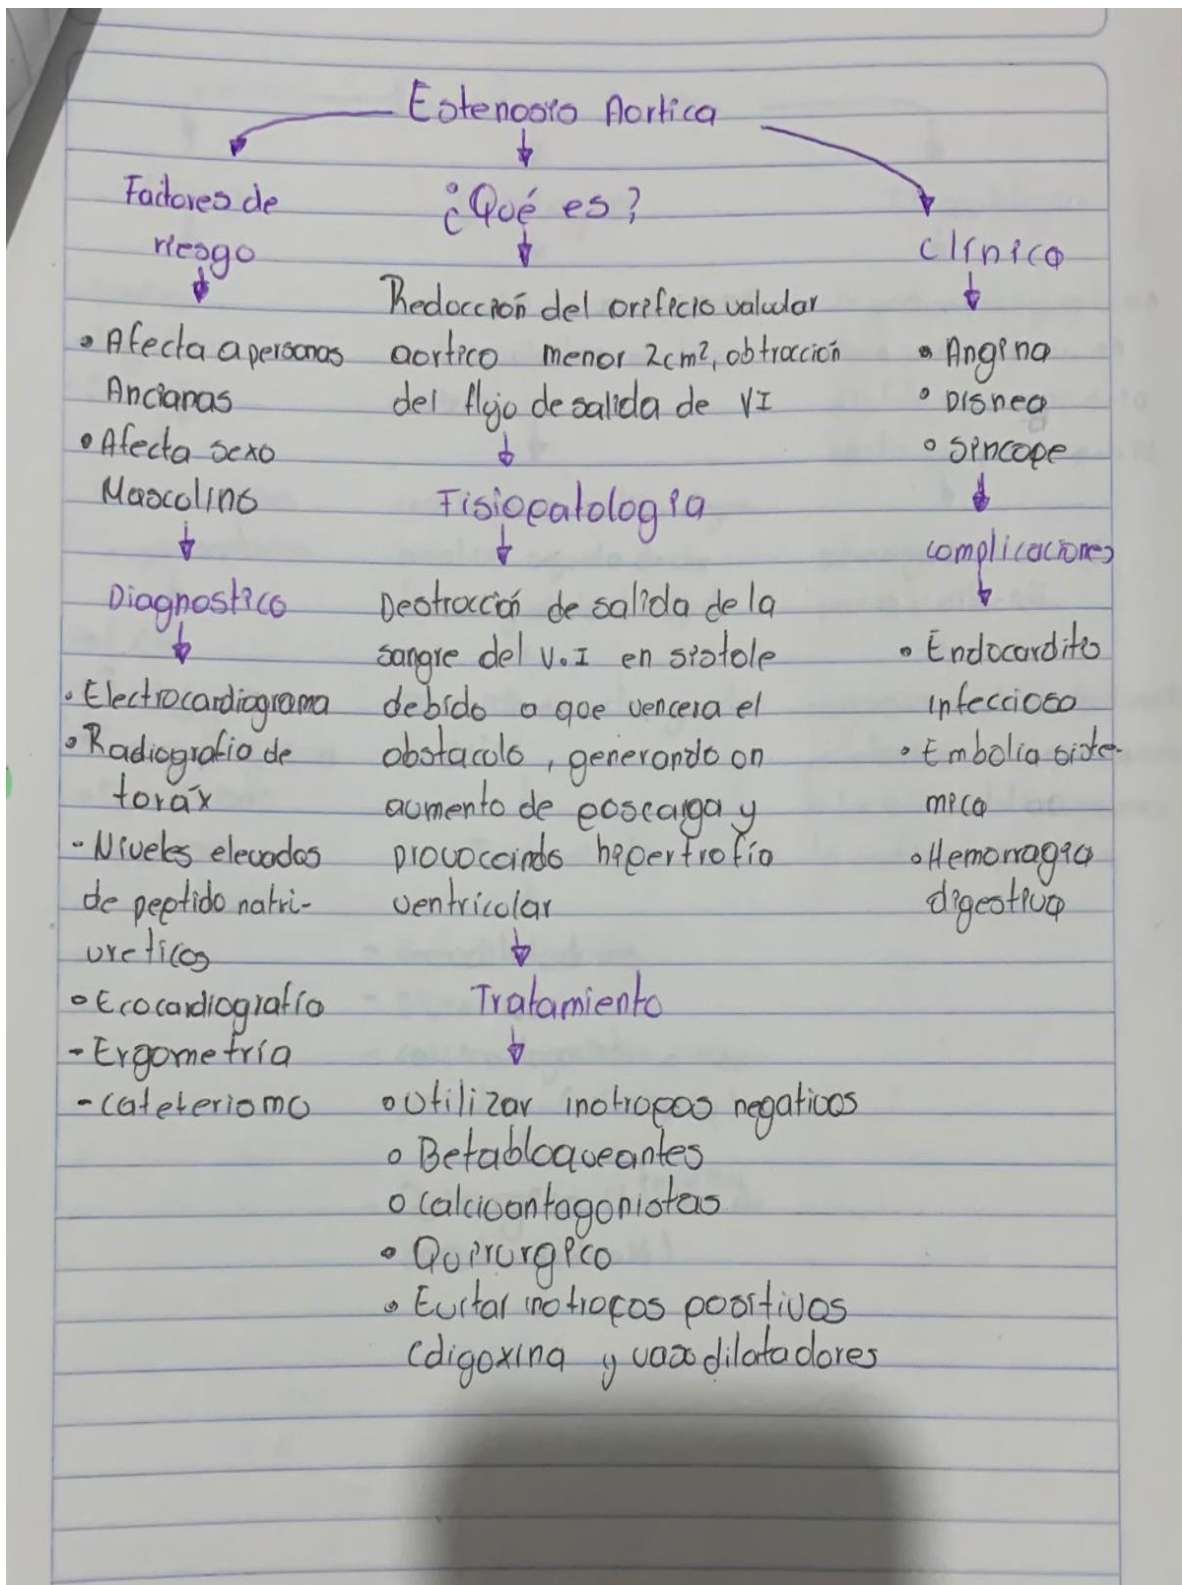 Estenosis Aortica
Factores de
riesgo
• Afecta a personas
Ancianas
• Afecta sexo
Masculino
Diagnostico
• Electrocardiograma
• Radiografia de
toráx
- Niveles elevados
de peptido natri-
ureticos
• Ecocardiografía
- Ergometría
- cateterismo
¿Qué es?
Reducción del orificio valvular
aortico menor 2cm², obtrucción
del flujo de salida de VI
Fisiopatologia
Destrucción de salida de la
sangre del V.I en sistole
debido a que vencera el
obstaculo, generando un
aumento de poscarga y
provoccindo hipertrofia
ventricular
Tratamiento
• Utilizar inotropos negativos
• Betabloqueantes
• Calcioantagonistas
• Quirurgico
• Evitar inotropos positivos
(digoxina y vasodilatadores
clínica
• Angina
• Disnea
• Sincope
complicaciones
• Endocarditis
infecciosa
• Embolia siste-
mica
• Hemorragia
digestiva